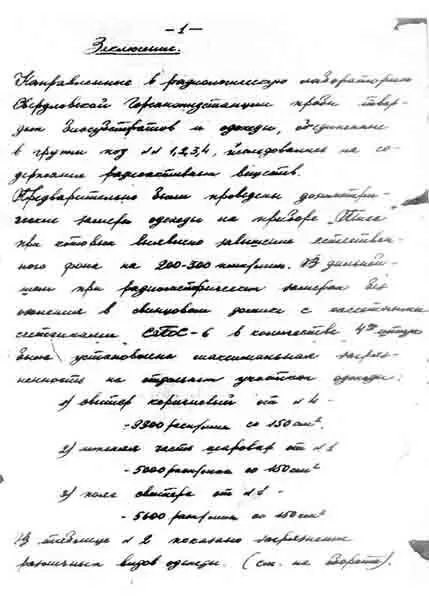 -1-
Заключение.
Направленные в радиологическую лабораторию
Свердловской Горсанэпидстанции пробы твер-
дых биосубстратов и одежды, объединенные
в группы под NN 1,2,3,4, исследованные на со-
держание радиоактивных веществ.
Предварительно были проведены дозиметри-
ческие замеры одежды на приборе
при которых выявлено завышение естествен-
ного фона на 200-300 имп/мин. В дальней-
шем при радиометрических замерах без
озоления в свинцовом домике с кассетными
счетчиками СТС-6 в количестве 4х штук
была установлена максимальная загряз-
ненность на отдельных участках одежды:
1) свитер коричневый от N 4 -
- 9900 расп/мин со 150 см².
2) нижняя часть шаровар от N 1
- 5000 расп/мин со 150 см²
3) пояс свитера от N 1 -
- 5600 расп/мин со 150 см².
В таблице N 2 показано загрязнение
различных видов одежды. (см. на обороте).